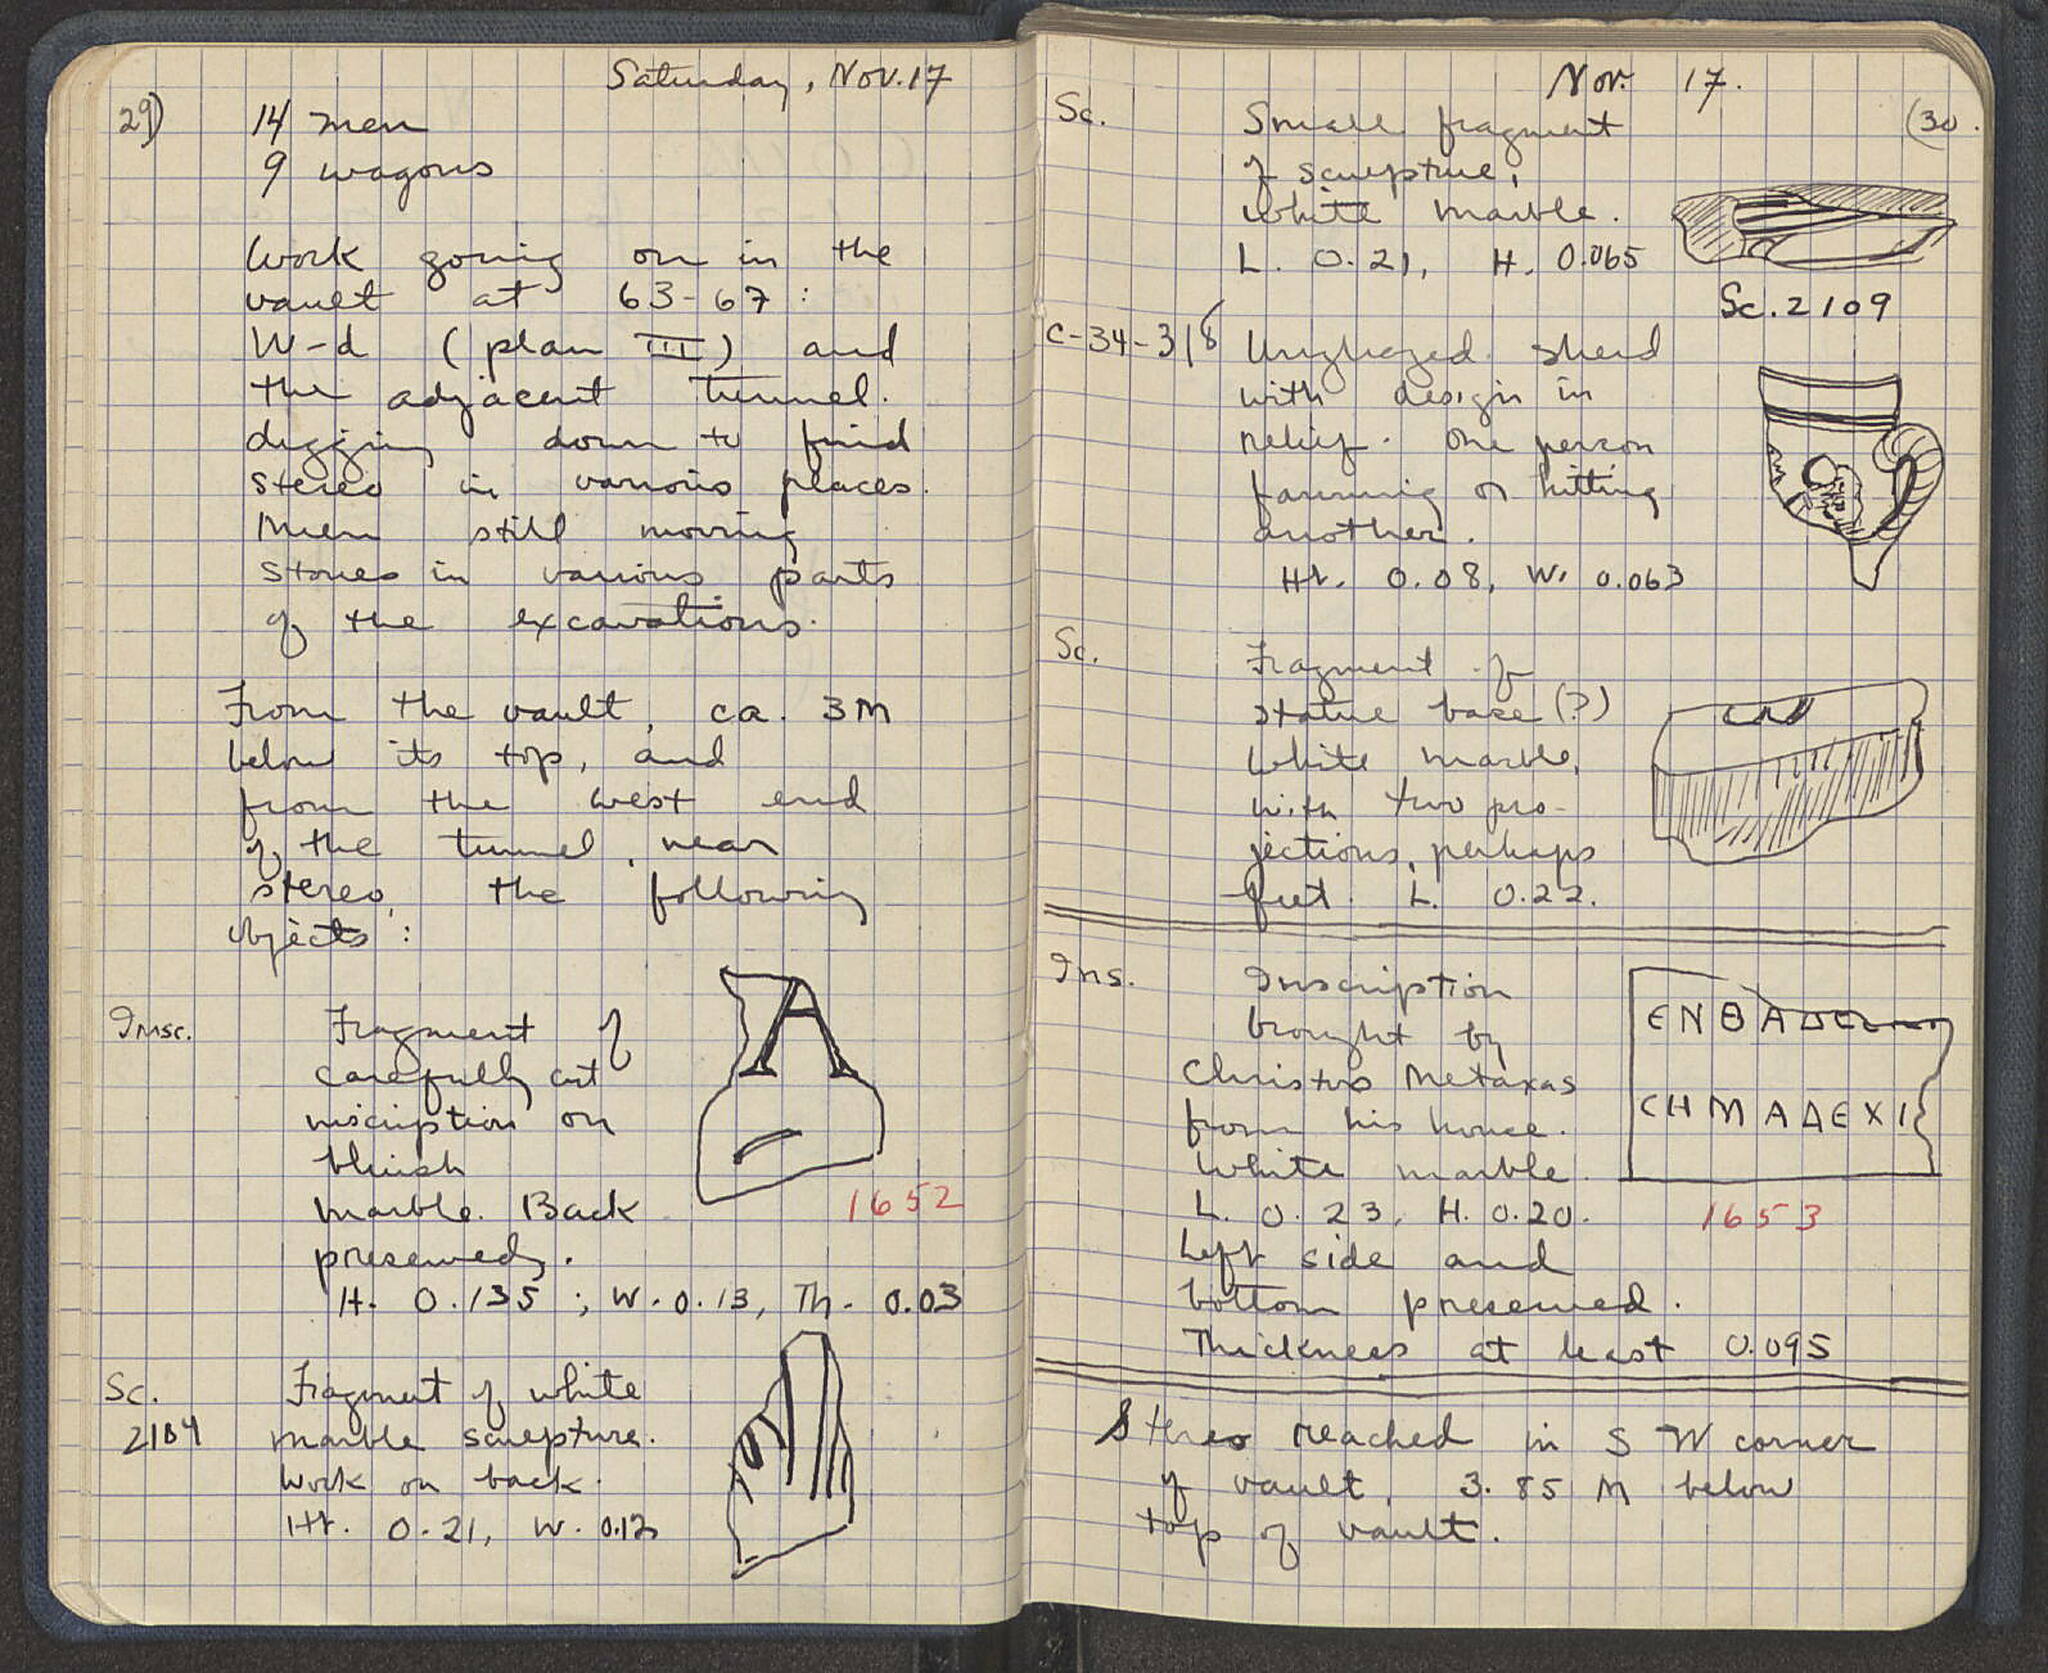 Saturday, Nov. 17
29)
14 men
9 wagons
Work going on in the
vault at 63-67:
W-d (plan III) and
the adjacent tunnel.
digging down to find
stereo in various places.
Men still moving
stones in various parts
of the excavations.
From the vault, ca. 3M
below its top, and
from the west end
of the tunnel, near
stereo, the following
objects:
Insc. Fragment of
carefully cut
inscription on
bluish
marble. Back
preserved.
H. 0.135; W. 0.13, Th. 0.03
A
1652
Sc. Fragment of white
marble sculpture.
Work on back.
Ht. 0.21, W. 0.12
Nov. 17.
(30.
Sc. Small fragment
of sculpture,
white marble.
L. 0.21, H. 0.065
Sc. 2109
C-34-318 Unglazed sherd
with design in
relief. One person
fanning or hitting
another.
Ht. 0.08, W. 0.063
Sc. Fragment of
statue base (?)
White marble,
with two pro-
jections, perhaps
feet. L. 0.22.
Ins. Inscription
brought by
Christos Metaxas
from his house.
White marble.
L. 0.23, H. 0.20.
Left side and
bottom preserved.
Thickness at least 0.095
CHMAΔEXI
1653
Stereo reached in SW corner
of vault, 3.85 M below
top of vault.